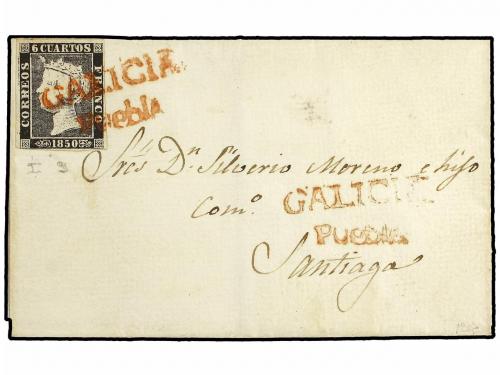 6 CUARTOS
CORREOS
FRANCO
1850
GALICIA
Puebla
Sres Dn. Silverio Moreno e hijo
Como.
GALICIA
PUEBLA
Santiago